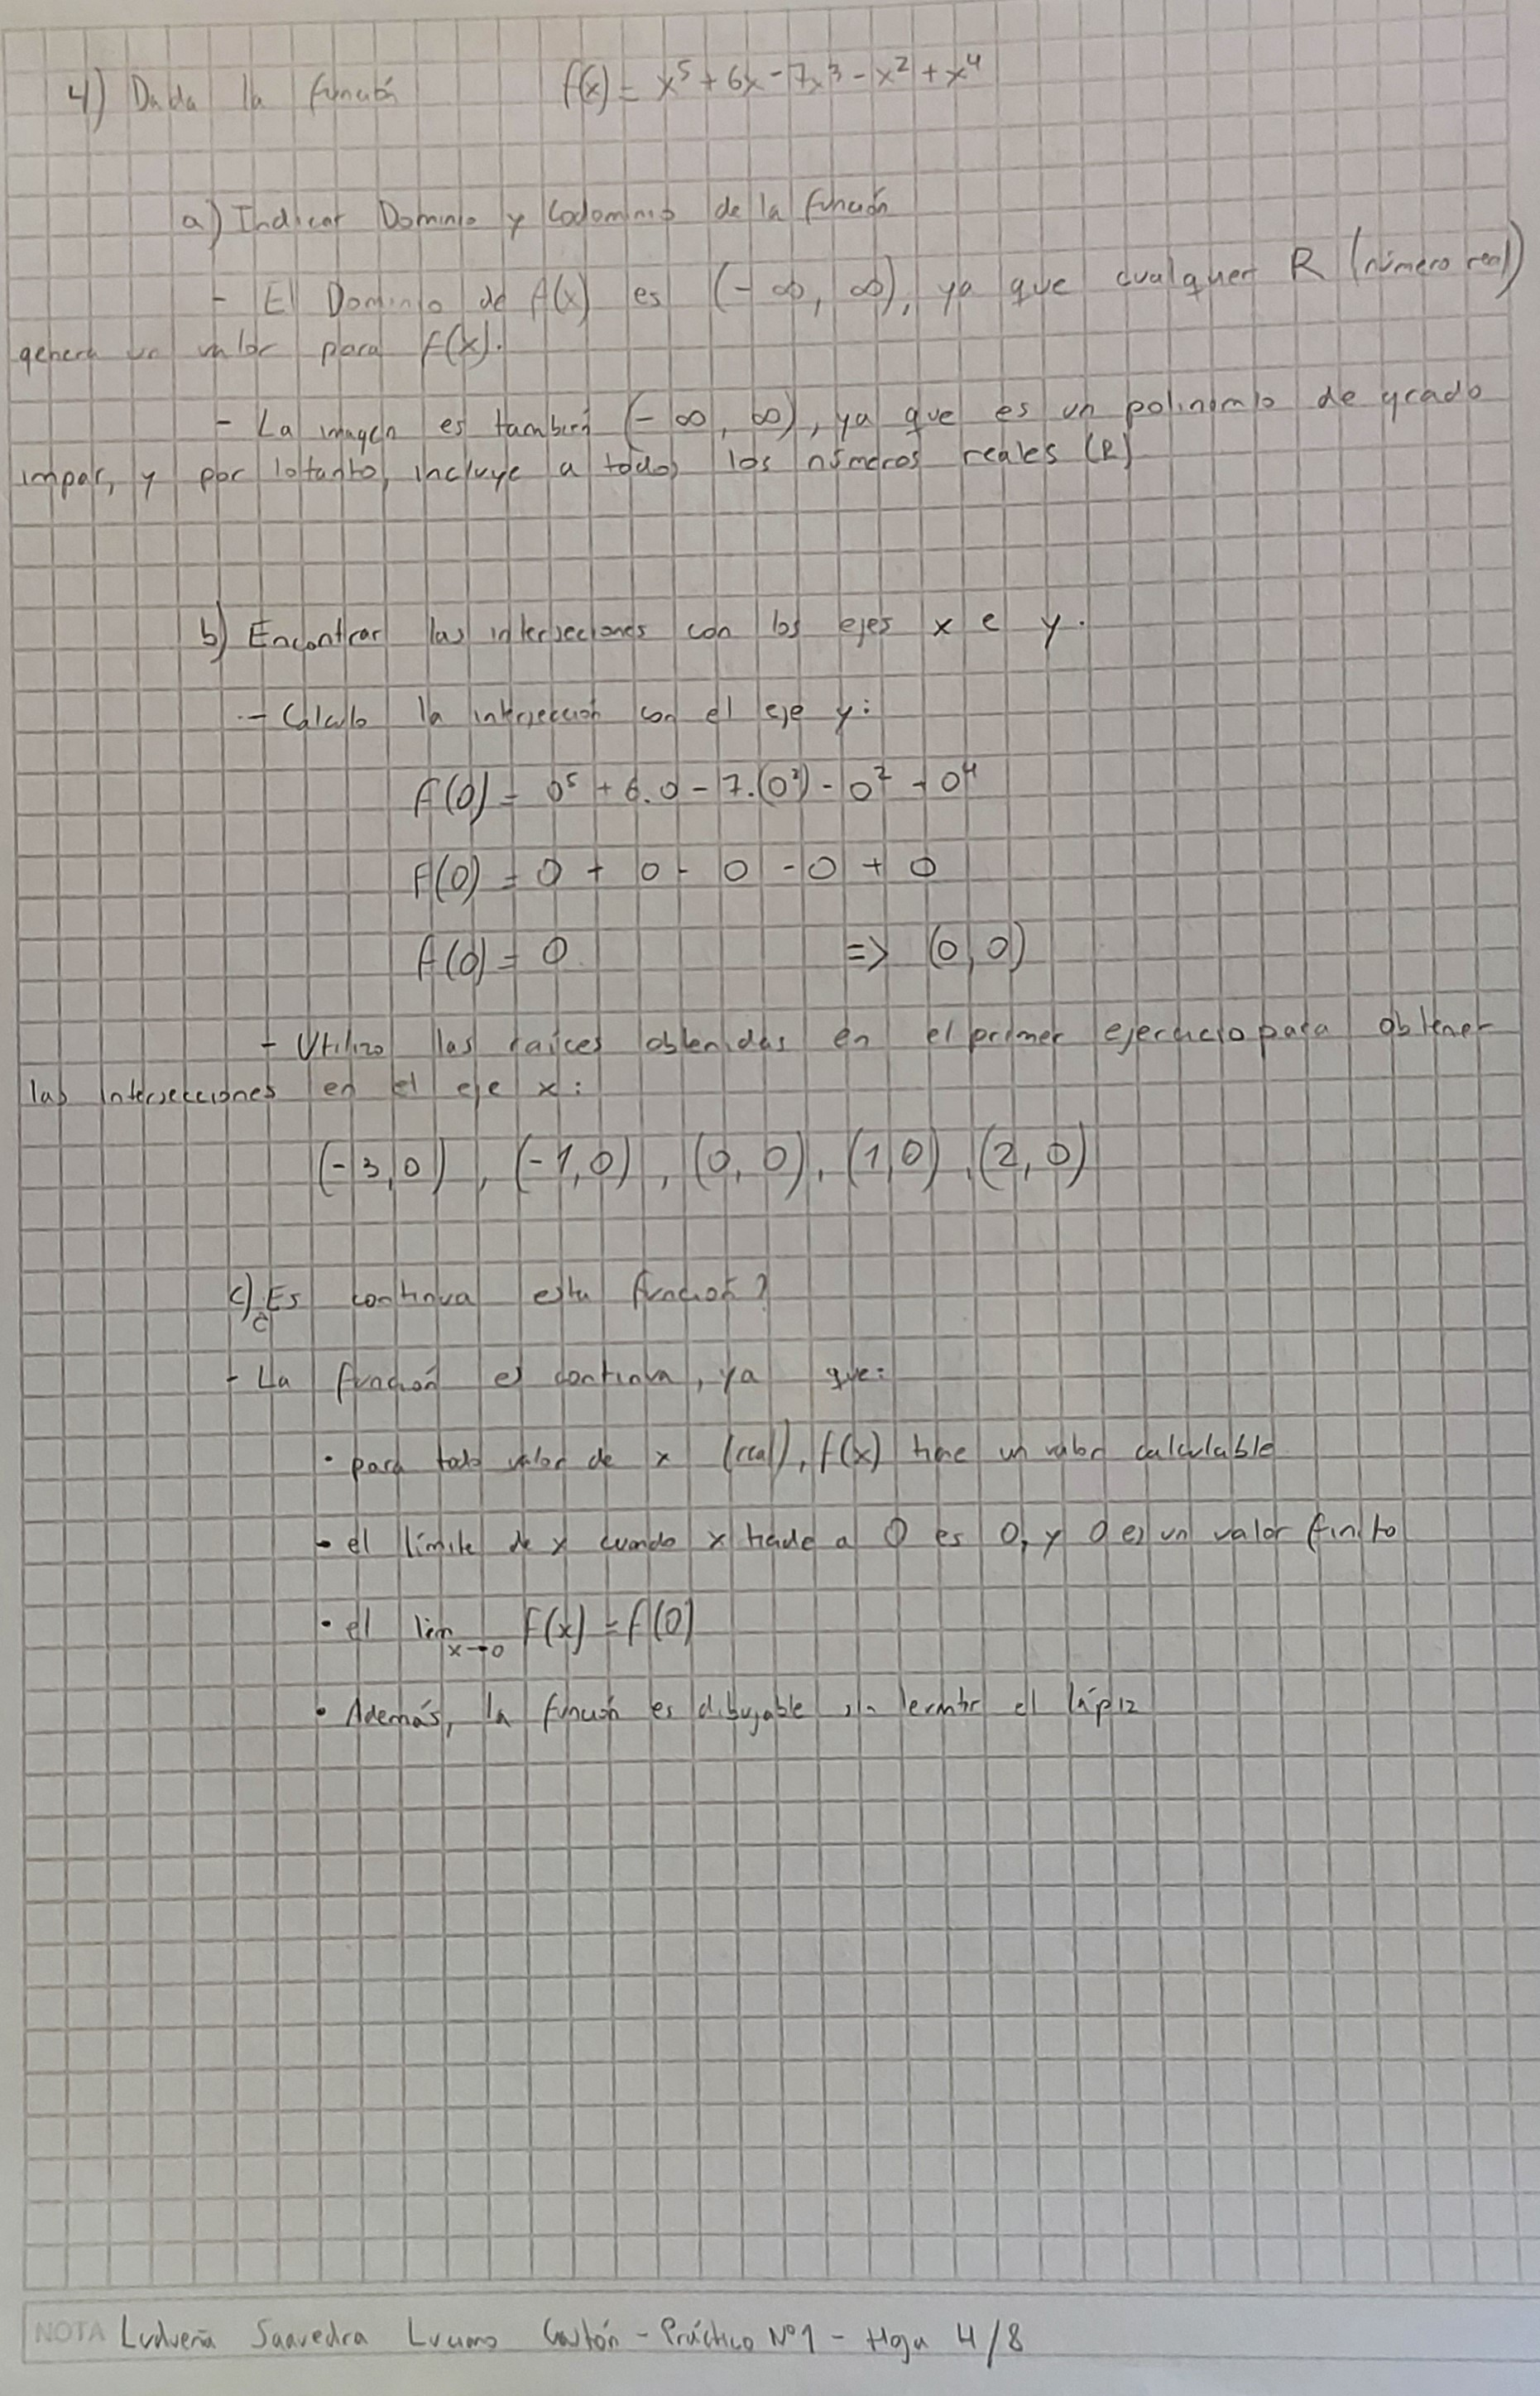 4) Dada la función f(x) = x⁵ + 6x - 7x³ - x² + x⁴
a) Indicar Dominio y Codominio de la función
- El Dominio de f(x) es (-∞, ∞), ya que cualquier R (número real)
genera un valor para f(x).
- La imagen es también (-∞, ∞), ya que es un polinomio de grado
impar, y por lo tanto, incluye a todos los números reales (R)
b) Encontrar las intersecciones con los ejes x e y.
- Calculo la intersección con el eje y:
f(0) = 0⁵ + 6.0 - 7.(0³) - 0² + 0⁴
f(0) = 0 + 0 - 0 - 0 + 0
f(0) = 0 => (0,0)
- Utilizo las raíces obtenidas en el primer ejercicio para obtener
las intersecciones en el eje x:
(-3,0), (-1,0), (0,0), (1,0), (2,0)
c) ¿Es continua esta función?
- La función es continua, ya que:
• para todo valor de x (real), f(x) tiene un valor calculable
• el límite de x cuando x tiende a 0 es 0, y 0 es un valor finito
• el lim x→0 f(x) = f(0)
• Además, la función es dibujable sin levantar el lápiz
NOTA Ludueña Saavedra Luciano Gastón - Práctico Nº1 - Hoja 4/8